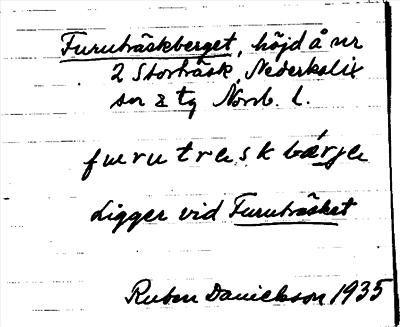 Furuträskberget, höjd å nr
2 Storträsk, Nederkalix
sn & tg Norrb. l.
furutreskbærje
Ligger vid Furuträsket
Ruben Danielsson 1935